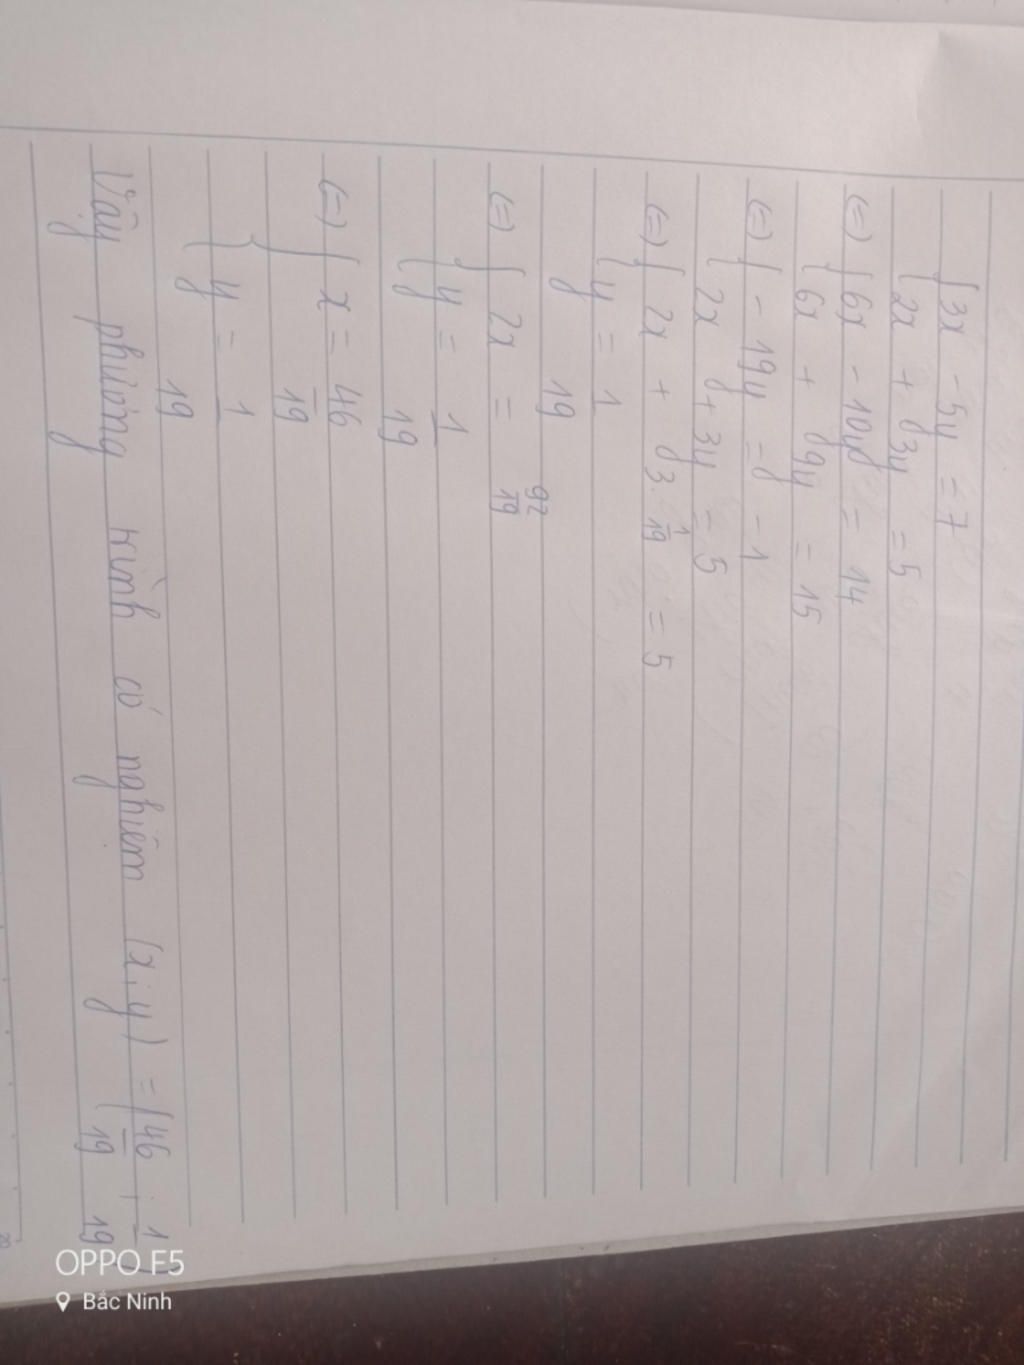 {3x - 5y = 7
{2x + 3y = 5
(=) {6x - 10y = 14
{6x + 9y = 15
(=) {-19y = -1
{2x + 3y = 5
(=) {2x + 3. 1/19 = 5
{y = 1/19
(=) {2x = 92/19
{y = 1/19
(=) {x = 46/19
{y = 1/19
Vậy phương trình có nghiệm (x;y) = (46/19 ; 1/19)
OPPO F5
Bắc Ninh